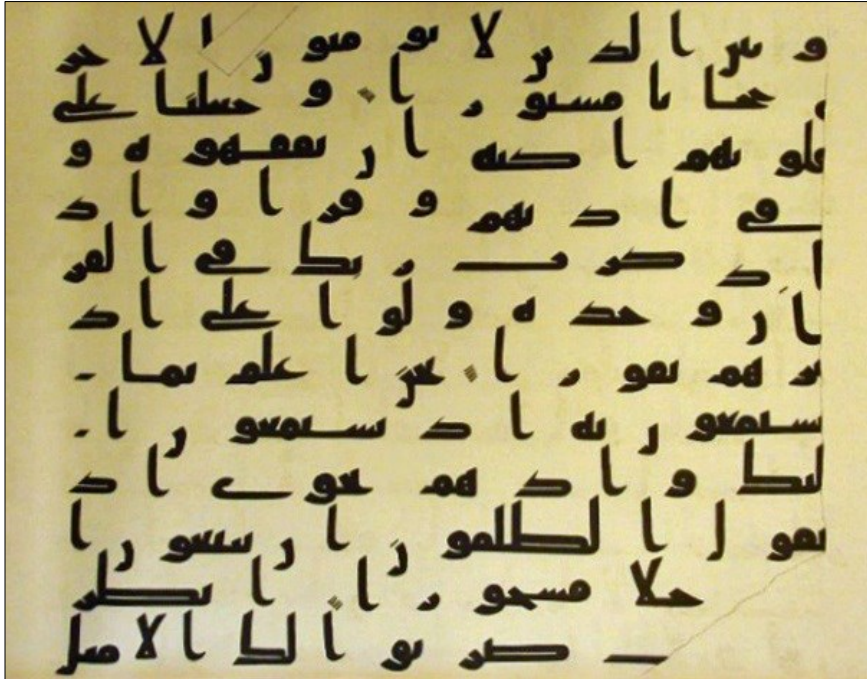 و بين الذين لا يؤمنون با لاخر
ة حجابا مستورا و جعلنا على
قلوبهم اكنة ان يفقهوه و
في اذنهم وقرا واذ
ا ذكرت ربك في القر
ان وحده ولوا على اد
برهم نفورا نحن اعلم بما
يستمعون به اذ يستمعون ا
ليك واذ هم نجوى اذ
يقول الظلمون ان تتبعون ا
جلا مسحورا انظر
ضربوا لك الامثل